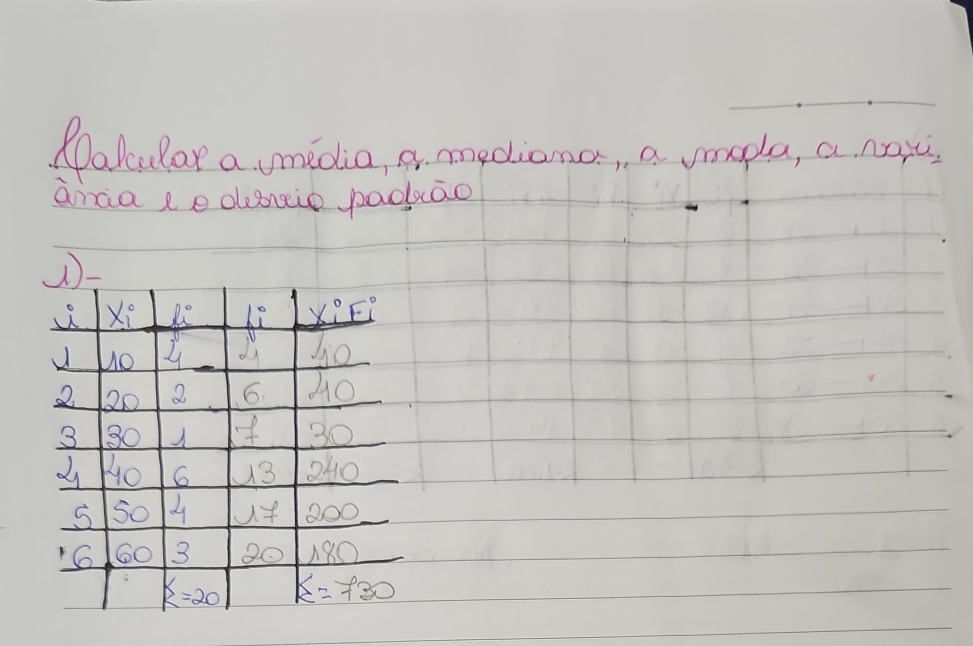 Calcular a média, a mediana, a moda, a vari-
ância e o desvio padrão
1)-
i Xi fi fi XiFi
1 10 4 4 40
2 20 2 6 40
3 30 1 7 30
4 40 6 13 240
5 50 4 17 200
6 60 3 20 180
Σ=20 Σ=730